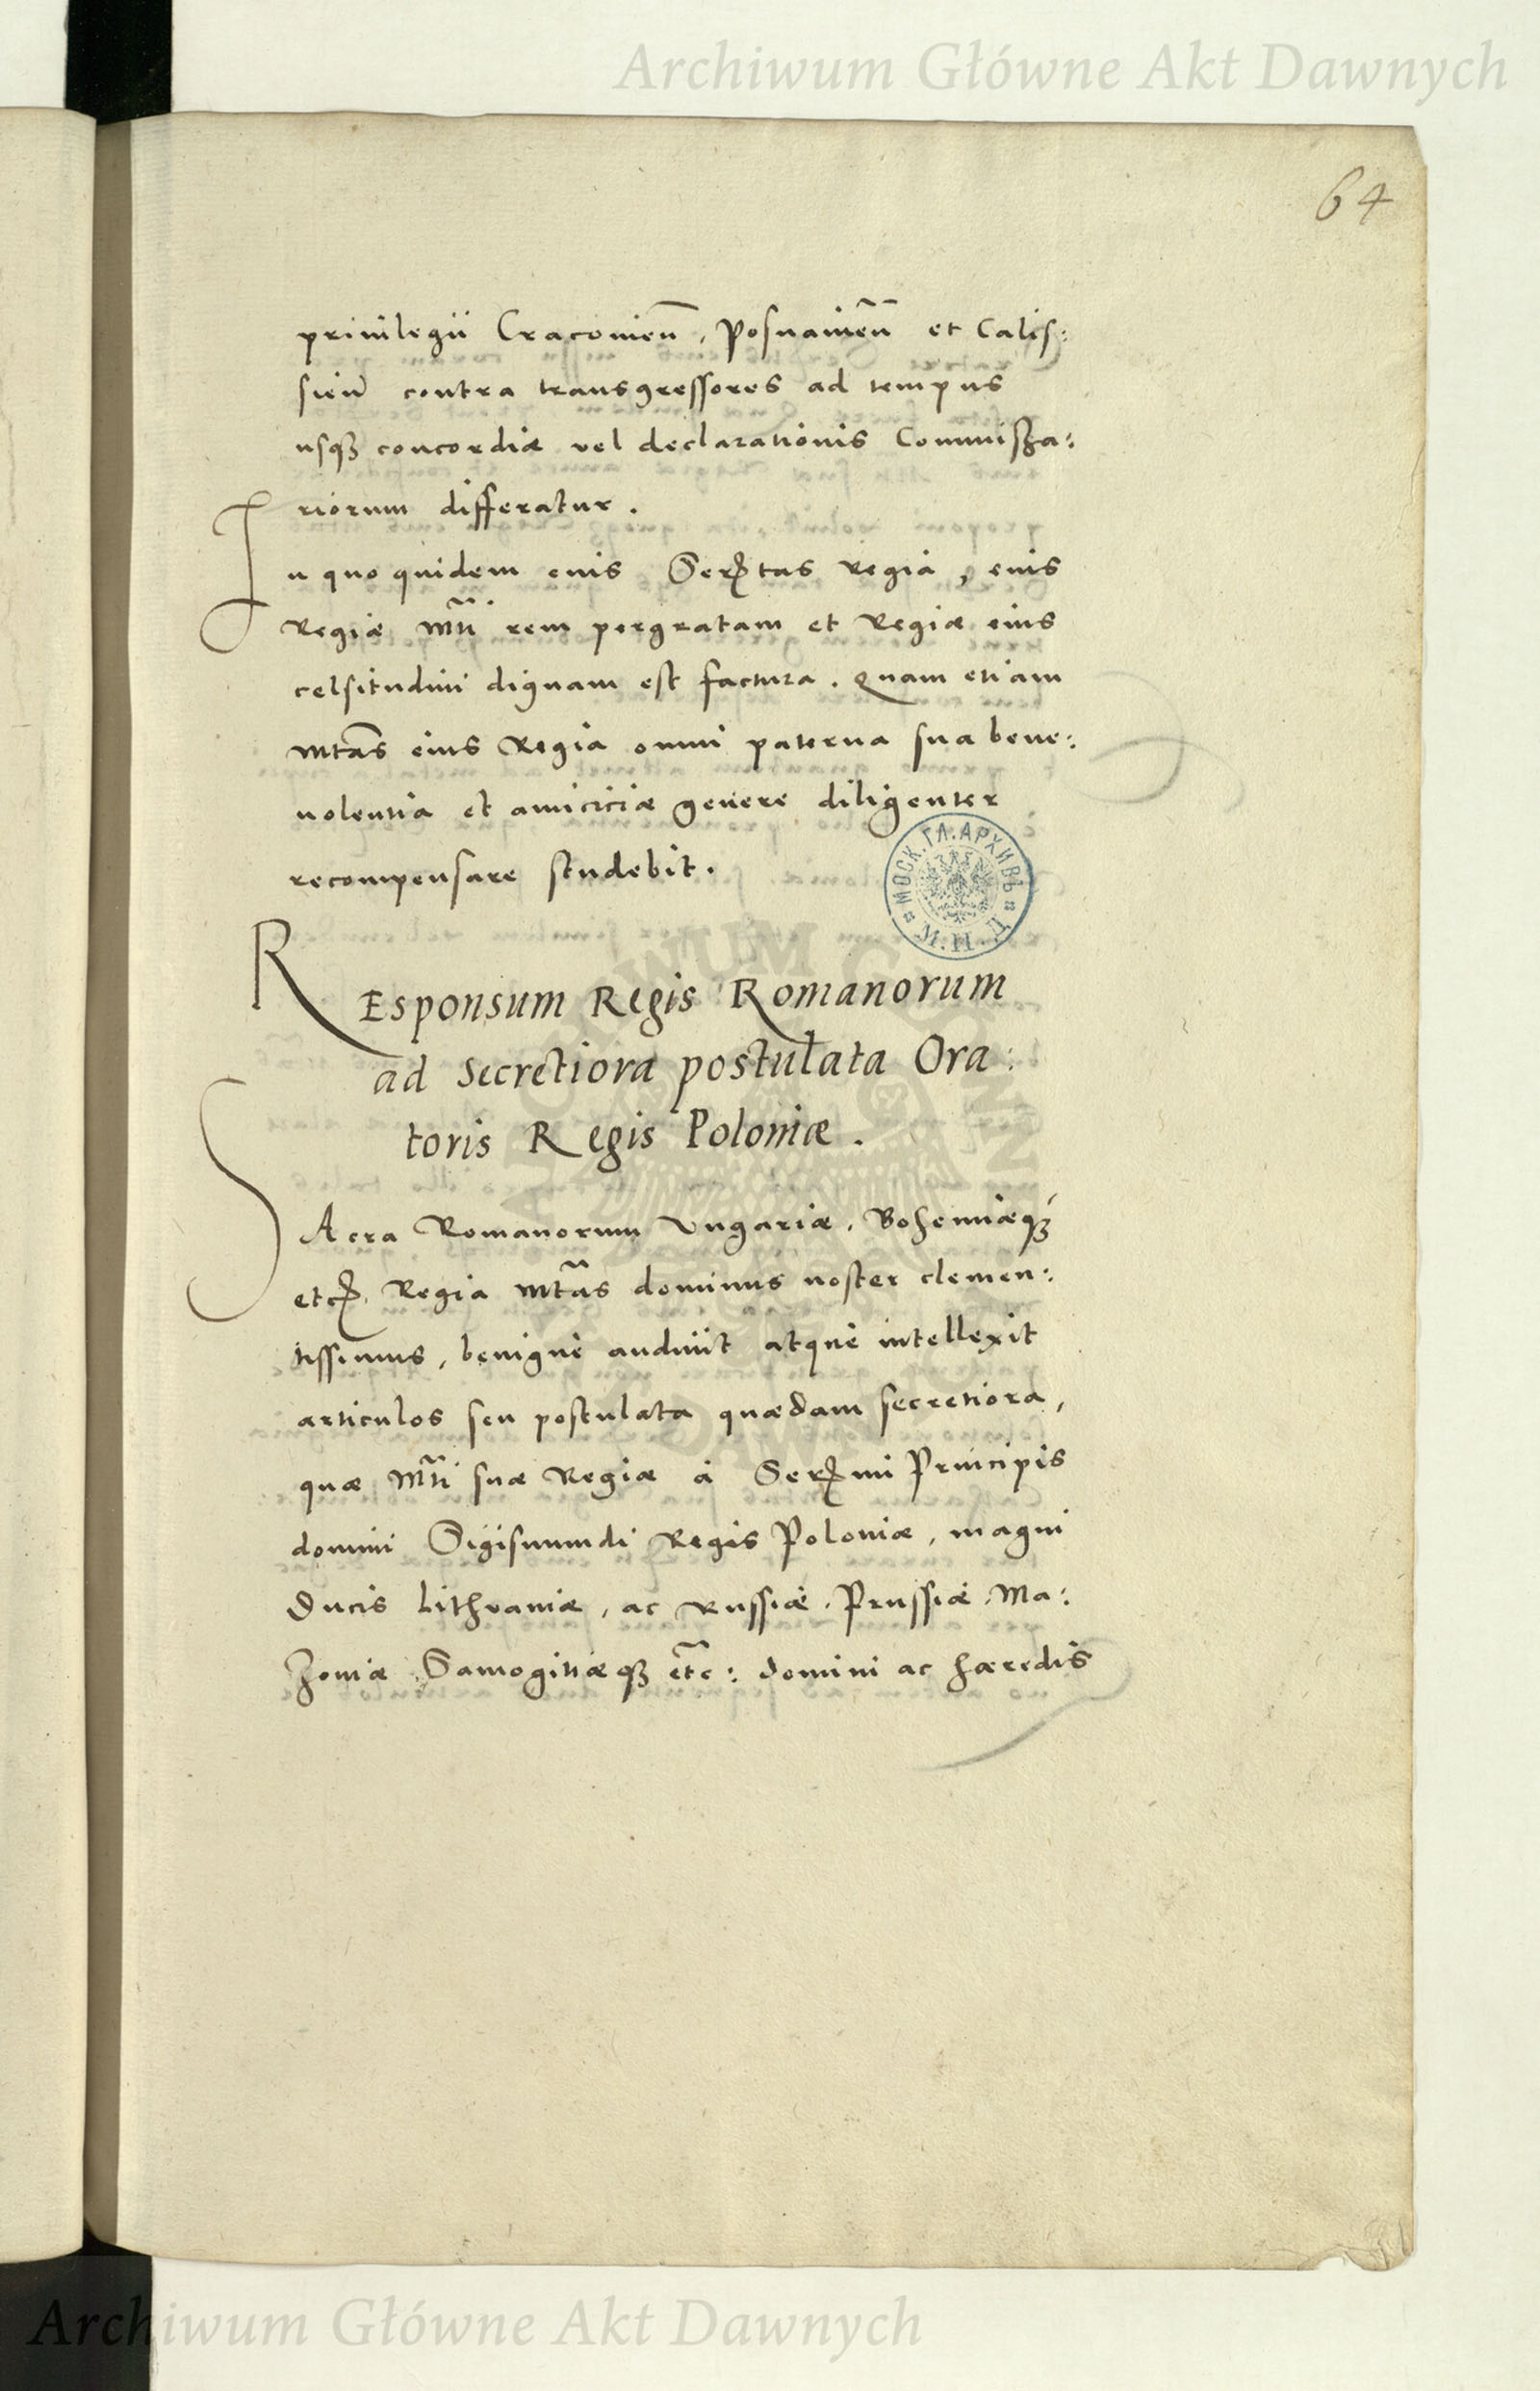 Archiwum Główne Akt Dawnych
64
priuilegii Cracouieñ, Posnanieñ et Calis:
sieñ contra transgressores ad tempus
usqꝫ concordiæ vel declarationis Commissza:
riorum differatur.
In quo quidem eius Serꝭtas Regia, eius
Regiæ Mti rem pergratam et Regiæ eius
celsitudini dignam est factura. Quam etiam
Mtas eius Regia omni paterna sua bene:
uolentia et amiciciæ genere diligenter
recompensare studebit.
МОСК. ГЛ. АРХИВЪ
М. И. Д.
REsponsum Regis Romanorum
ad Secretiora postulata Ora:
toris Regis Poloniæ.
SAcra Romanorum Vngariæ, Bohemiæqꝫ
etcꝭ. Regia Mtas dominus noster clemen:
tissimus, benignè audiuit atque intellexit
articulos seu postulata quædam secretiora,
quæ Mti suæ Regiæ à Serꝭmi Principis
domini Sigismundi Regis Poloniæ, magni
Ducis Lithvaniæ, ac Russiæ, Prussiæ, Ma:
zoniæ Samogitiæqꝫ etc: domini ac hæredis
Archiwum Główne Akt Dawnych